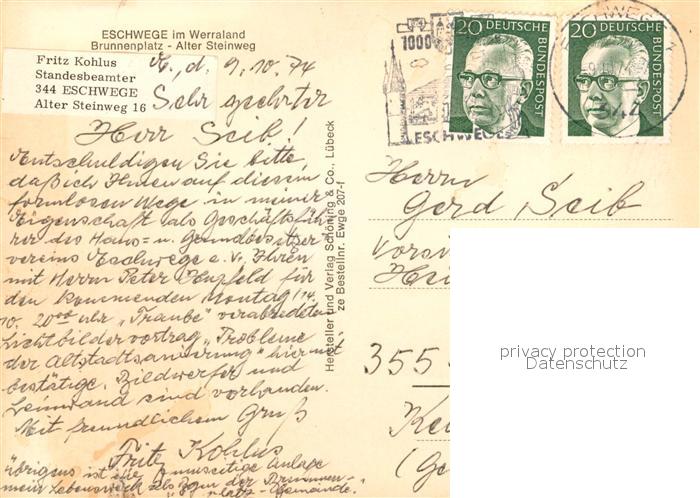 ESCHWEGE im Werraland
Brunnenplatz - Alter Steinweg
Fritz Kohlus
Standesbeamter
344 ESCHWEGE
Alter Steinweg 16
E., d. 9.10.74
Sehr geehrter
Herr Seib!
Entschuldigen Sie bitte,
daß ich Ihnen auf diesem
formlosen Wege in meiner
Eigenschaft als Geschäftsfüh-
rer des Haus= u. Grundbesitzer
vereins Eschwege e.V. Ihren
mit Herrn Peter Hupfeld für
den kommenden Montag, 14.
10. 20⁰⁰ Uhr „Traube" verabredeten
Lichtbildervortrag „Probleme
der Altstadtsanierung" hiermit
bestätige. Bildwerfer und
Leinwand sind vorhanden.
Mit freundlichem Gruß
Fritz Kohlus
Übrigens ist die umseitige Anlage
mein Lebenswerk als der Brunnen-
platz-Gemeinde.
Hersteller und Verlag Schöning & Co., Lübeck
ze Bestellnr. Ewge 207-f
1000
ESCHWEGE
20 DEUTSCHE BUNDESPOST
20 DEUTSCHE BUNDESPOST
ESCHWEGE 1
Herrn
Gerd Seib
355
privacy protection
Datenschutz